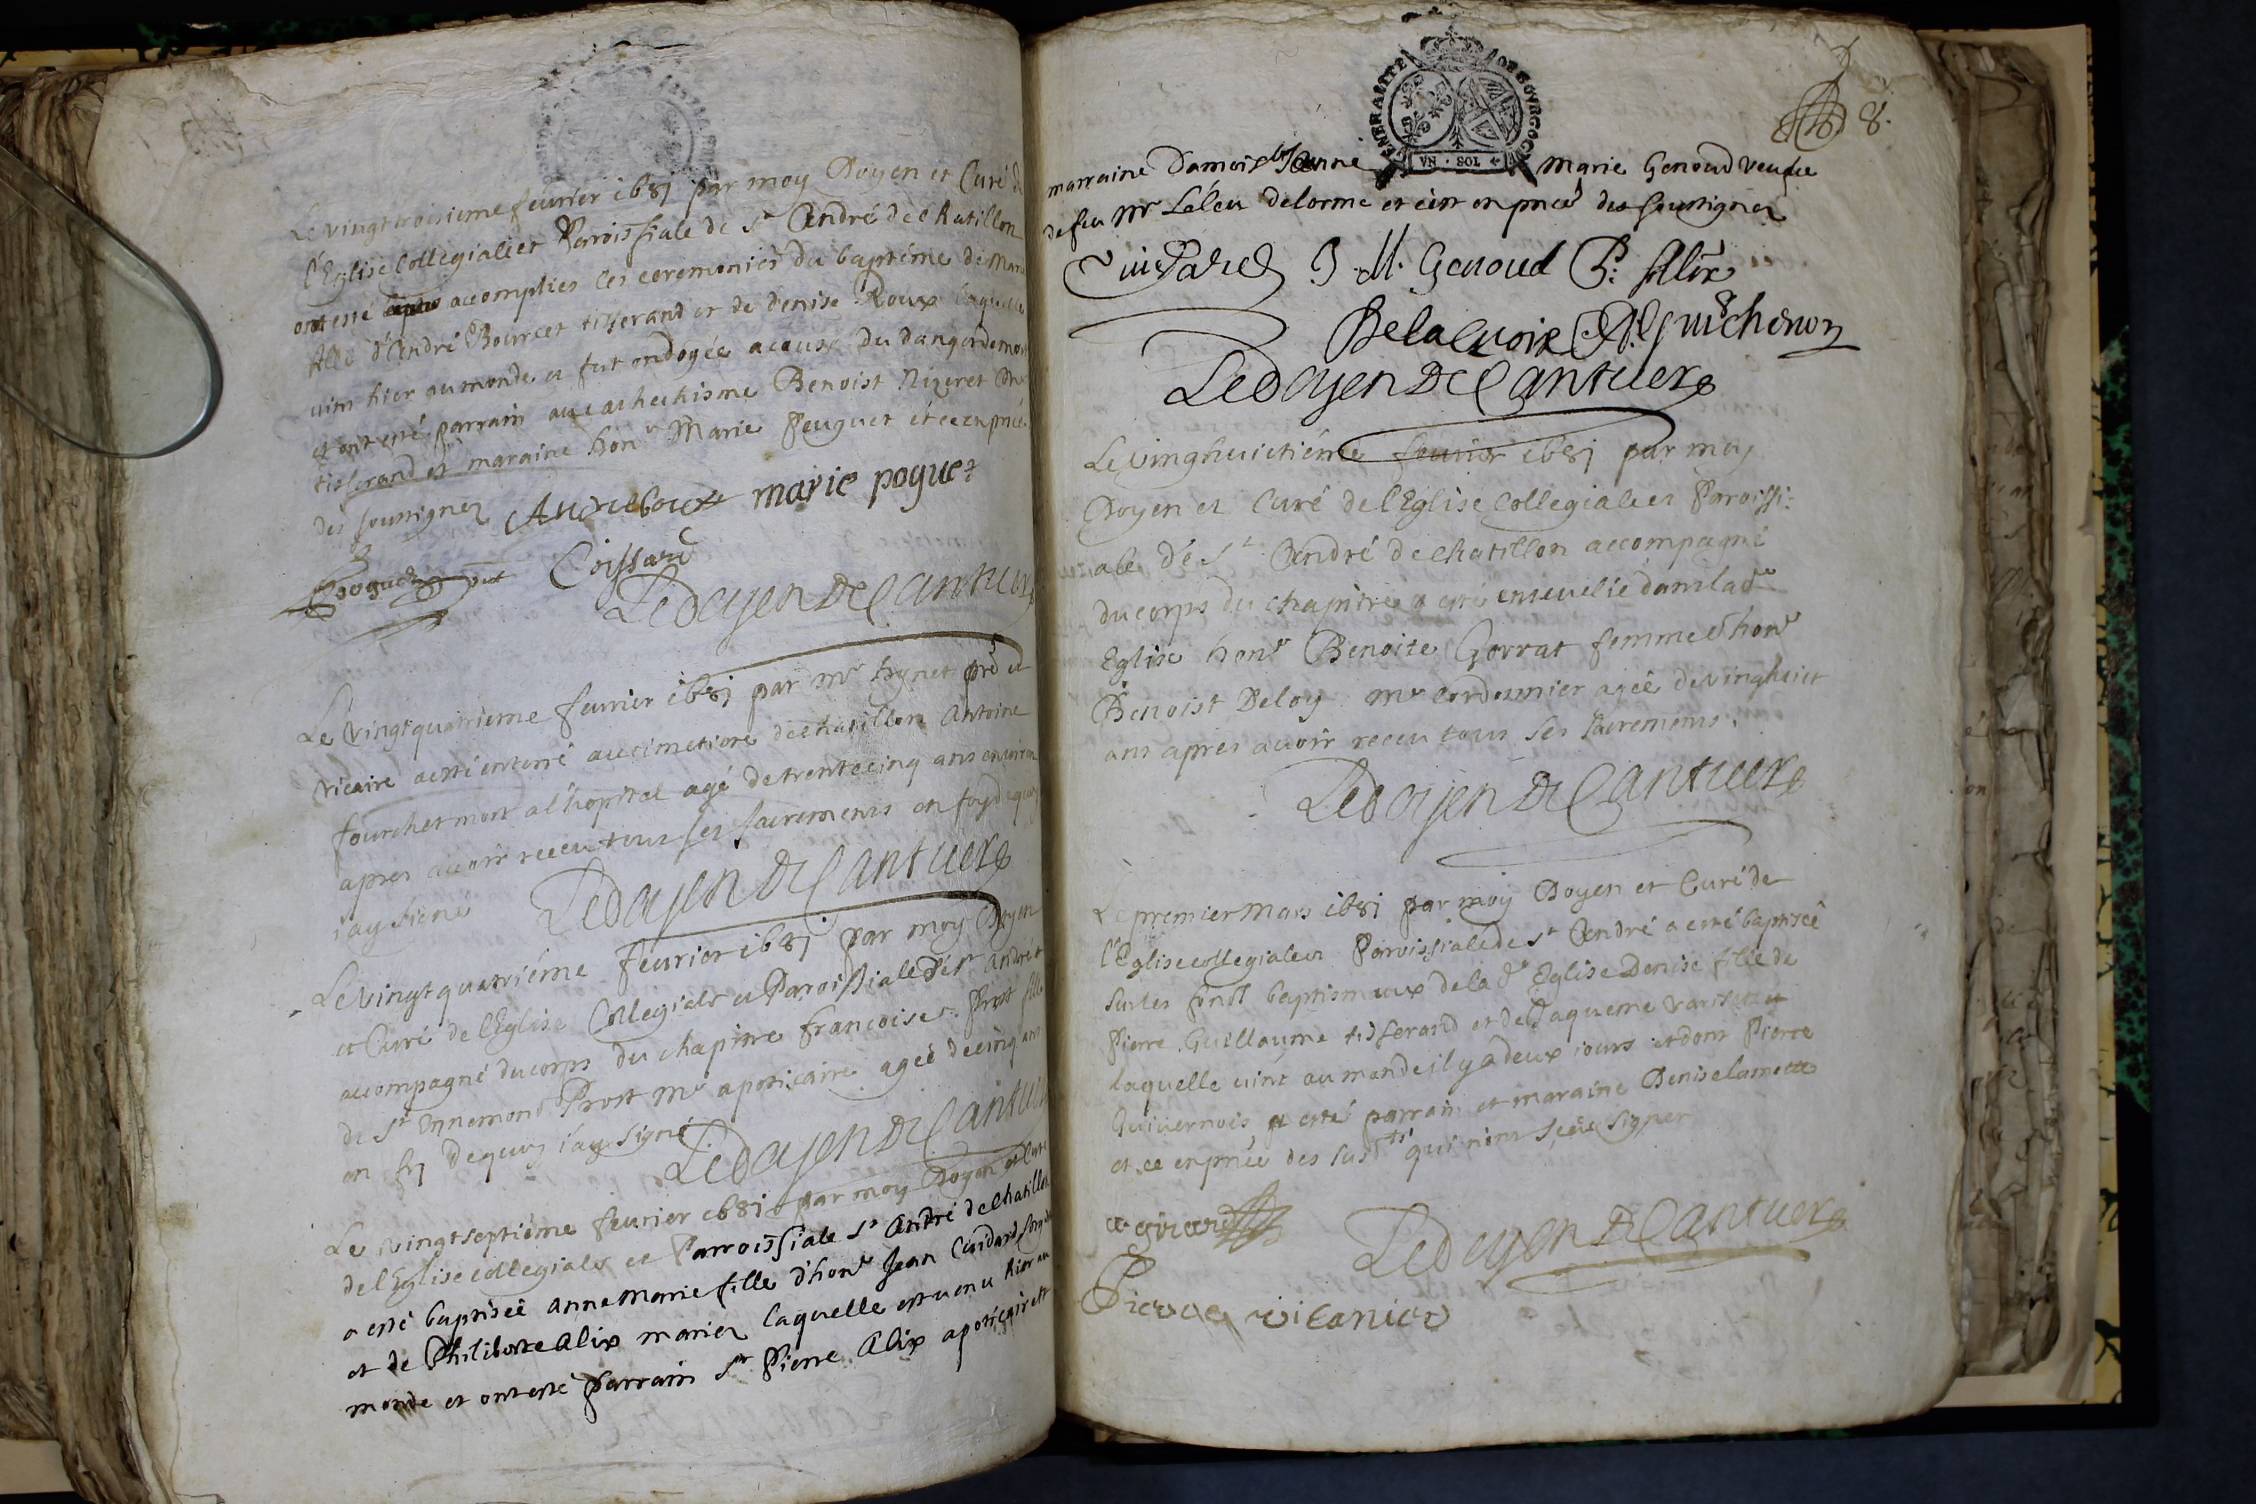 Le vingt troisieme feurier 1681 par moy Doyen et Curé de
l'Eglise Collegiale et Parroissiale de St André de chatillon
ont esté accomplies les ceremonies du baptéme de Marie
fille d'André Bourcet tisserand et de denise Roux laquelle
vint hier au monde et fut ondoyée a cause du danger de mort
et ont esté parrain au cathechisme Benoist Nizeret Mre
tisserand et maraine honr Marie Peuguet et ce en pnce
des soussignez marie poguet
Coissard
Ledoyen De Cantuer
Le vingt quatrieme feurier 1681 par mr pre et
vicaire a esté enterré au cimetiere de chatillon Antoine
fourchet mort a l'hopital agé de trente cinq ans environ
apres auoir receu tous ses sacrements en foy de quoy
i'ay signé Ledoyen De Cantuer
Le vingt quatriéme feurier 1681 par moy Doyen
et Curé de l'Eglise Collegiale et Paroissiale de St André et
accompagné du corps du chapitre francoise Prost fille
de St Ennemond Prost Mre apoticaire agée de cinq ans
en foy de quoy i'ay signé Ledoyen De Cantuer
Le vingt septiéme feurier 1681 par moy Doyen et Curé
de l'Eglise collegiale et Parroissiale St André de chatillon
a esté baptiseé anne Marie fille d'honr Jean
et de Philiberte Alix mariez laquelle est venu hier au
monde et ont esté parrain Sr Pierre Alix apoticaire et
GENERALITE DE BOVRGOGNE
VN · SOL
8.
marraine Damoislle Jeanne Marie Genoud veufue
de feu Mr Delorme et ce en pnce des soussignez
J. M. Genoud P: Alix
Delacroix Guichenon
Ledoyen De Cantuer
Le vinghuictiéme feurier 1681 par moy
Doyen et Curé de l'Eglise Collegiale et Paroissi:
ale de St André de chatillon accompagné
du corps du chapitre a esté enseuelie dans lade
Eglise honr Benoite Gorrat femme d'honr
Benoist Deloy mre cordonnier ageé de vinghuict
ans apres auoir receu tous ses sacrements.
Ledoyen De Cantuer
Le premier Mars 1681 par moy Doyen et Curé de
l'Eglise collegiale et Paroissiale de St André a esté baptiseé
sur les fonts baptismaux de la de Eglise Denise fille de
Pierre Guillaume tisserand et de Jaqueme
laquelle vint au monde il y a deux iours et dont Pierre
Quivernois a esté parrain et maraine Denise lamette
et ce en pnce des susts qui n'ont sceu signer
Ledoyen De Cantuer